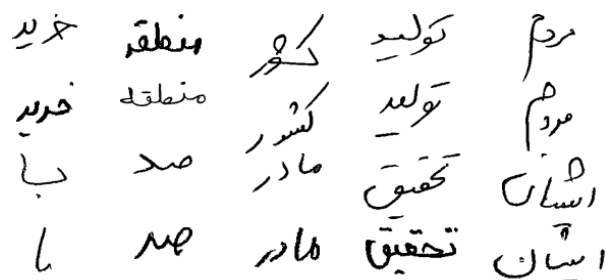 مردم تولید کشور منطقه خرید
مردم تولید کشور منطقه خرید
ایشان تحقیق مادر صد با
ایشان تحقیق مادر صد با